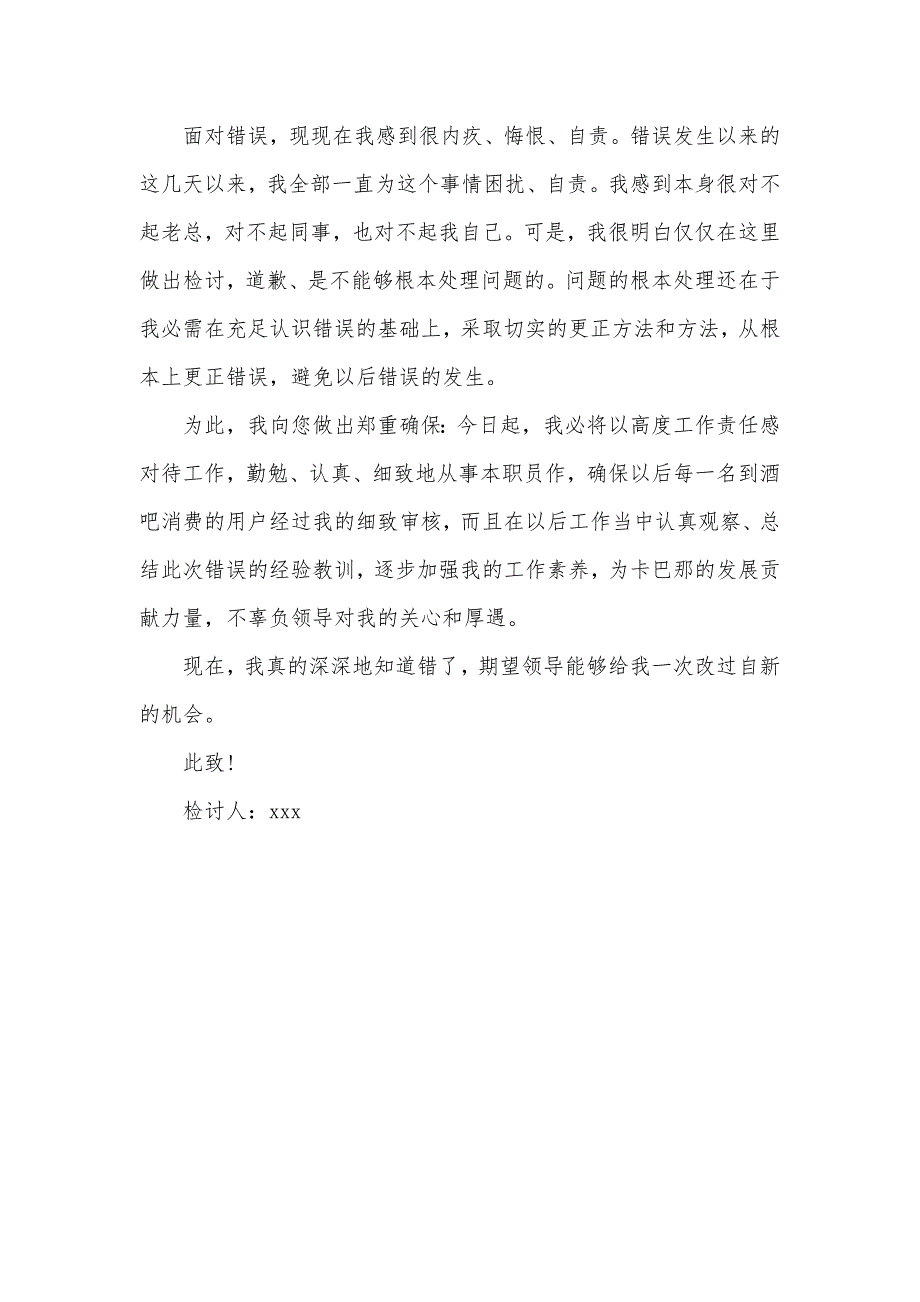 面对错误，现现在我感到很内疚、悔恨、自责。错误发生以来的
这几天以来，我全部一直为这个事情困扰、自责。我感到本身很对不
起老总，对不起同事，也对不起我自己。可是，我很明白仅仅在这里
做出检讨，道歉、是不能够根本处理问题的。问题的根本处理还在于
我必需在充足认识错误的基础上，采取切实的更正方法和方法，从根
本上更正错误，避免以后错误的发生。
为此，我向您做出郑重确保：今日起，我必将以高度工作责任感
对待工作，勤勉、认真、细致地从事本职员作，确保以后每一名到酒
吧消费的用户经过我的细致审核，而且在以后工作当中认真观察、总
结此次错误的经验教训，逐步加强我的工作素养，为卡巴那的发展贡
献力量，不辜负领导对我的关心和厚遇。
现在，我真的深深地知道错了，期望领导能够给我一次改过自新
的机会。
此致!
检讨人：xxx